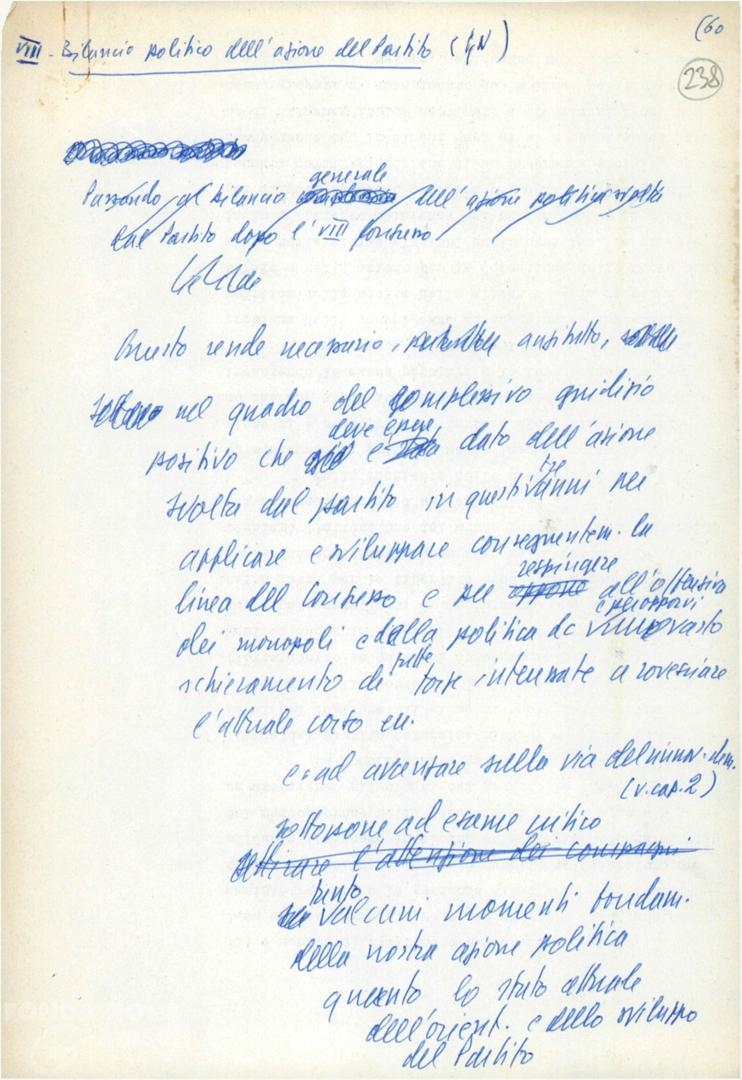 (60
VIII - Bilancio politico dell'azione del Partito (GN)
238
generale
Passando al bilancio dell'azione politica svolta
dal Partito dopo l'VIII Congresso
Questo rende necessario, anzitutto,
nel quadro del complessivo giudizio
deve essere
positivo che dato dell'azione
tre
svolta dal partito in questi anni per
applicare e sviluppare conseguentem. la
respingere
linea del Congresso e per all'offensiva
e per opporvi
dei monopoli e dalla politica dc un vasto
tutte
schieramento di forze interessate a rovesciare
l'attuale corso
e ad avanzare sulla via del rinnov. dem.
(v. cap. 2)
sottoporre ad esame critico
attirare l'attenzione dei compagni
tanto
alcuni momenti fondam.
della nostra azione politica
quanto lo stato attuale
dell'orient. e dello sviluppo
del Partito